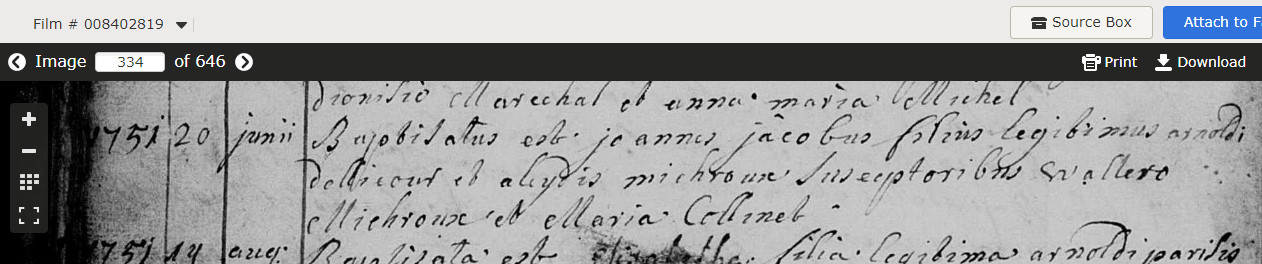 Film # 008402819
Source Box
Attach to F
Image 334 of 646
Print
Download
dionisio Marechal et anna maria Michel
1751 20 junii Baptisatus est joannes jacobus filius legitimus arnoldi
et aleydis michroux Susceptoribus Wallero
Michroux et Maria Collinet
1751 14 aug: Baptisata est Elizabetha filia legitima arnoldi parisis